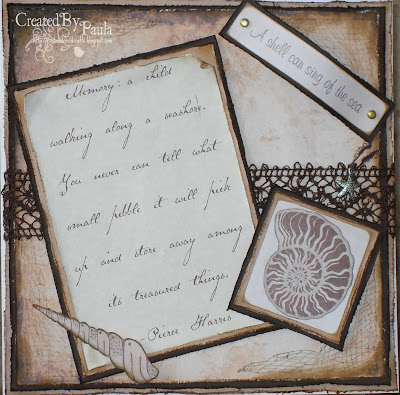 Created By
Paula
A shell can sing of the sea
Memory: a child
walking along a seashore.
You never can tell what
small pebble it will pick
up and store away among
its treasured things.
-Pierce Harris